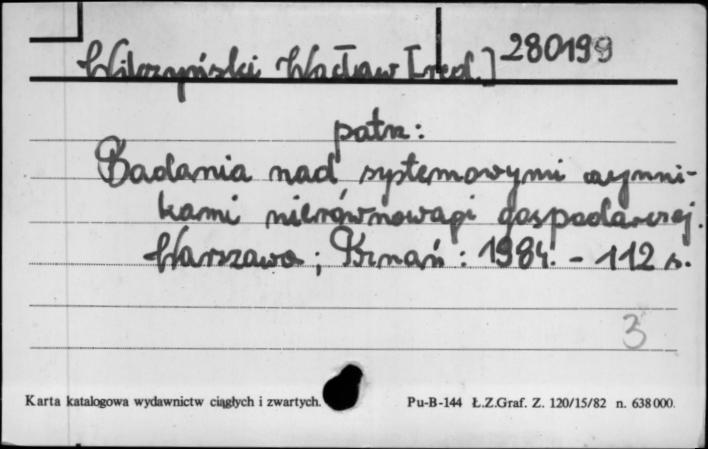 Wilczyński Wacław [red.] 280199
patrz:
Badania nad systemowymi czynni-
kami nierównowagi gospodarczej.
Warszawa; Poznań: 1984. - 112 s.
3
Karta katalogowa wydawnictw ciągłych i zwartych. Pu-B-144 Ł.Z.Graf. Z. 120/15/82 n. 638000.